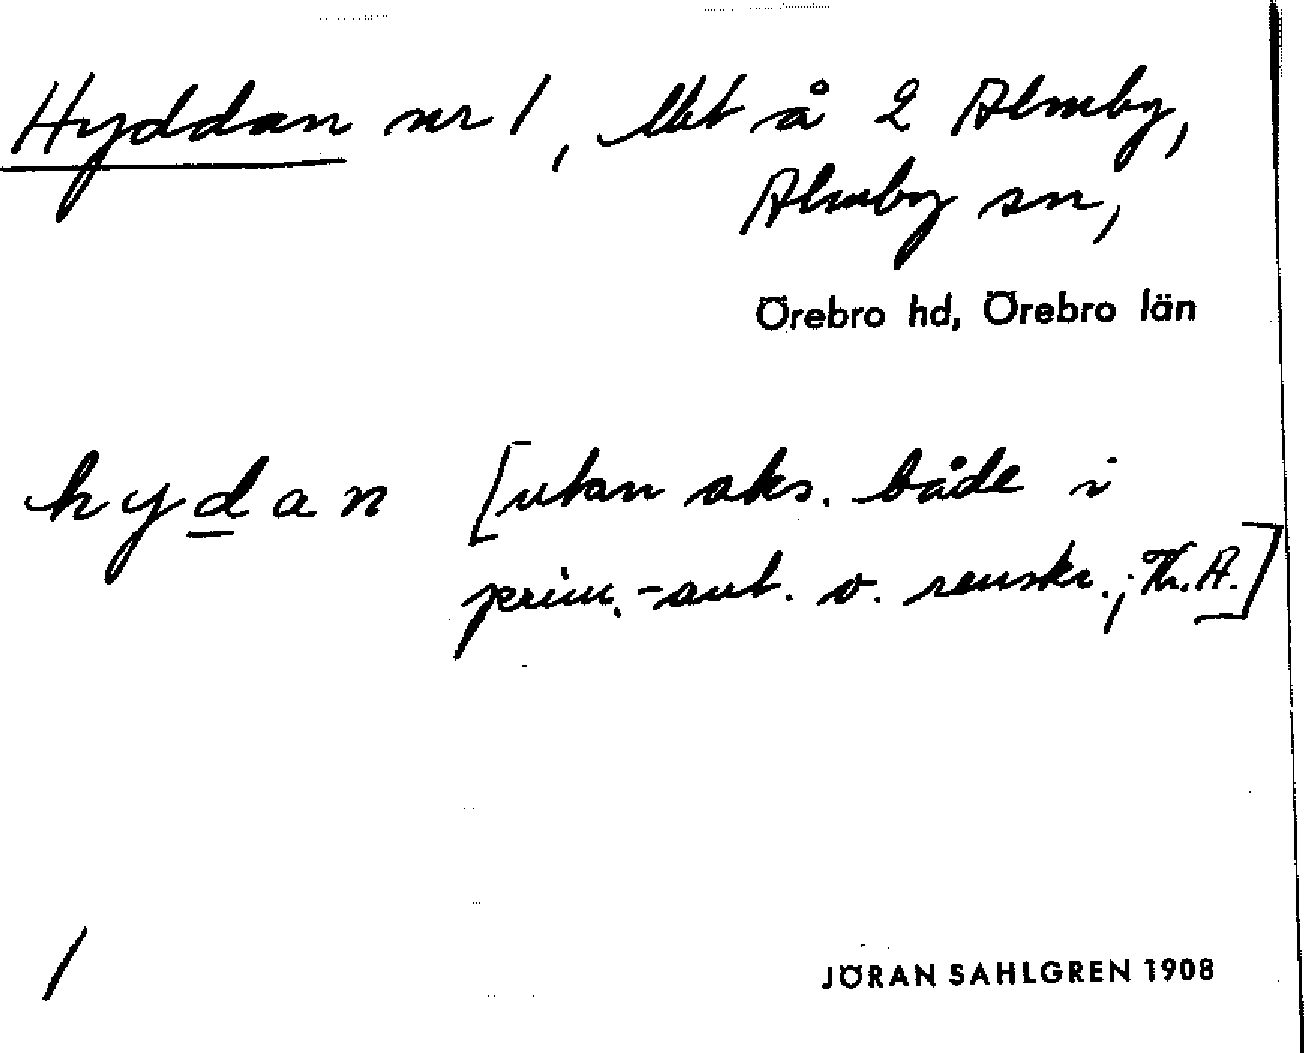 Hyddan nr 1, lht å 2 Almby,
Almby sn,
Örebro hd, Örebro län
hydan [utan aks. både i
prim.-ant. o. renskr.; Th.A.]
1
JÖRAN SAHLGREN 1908